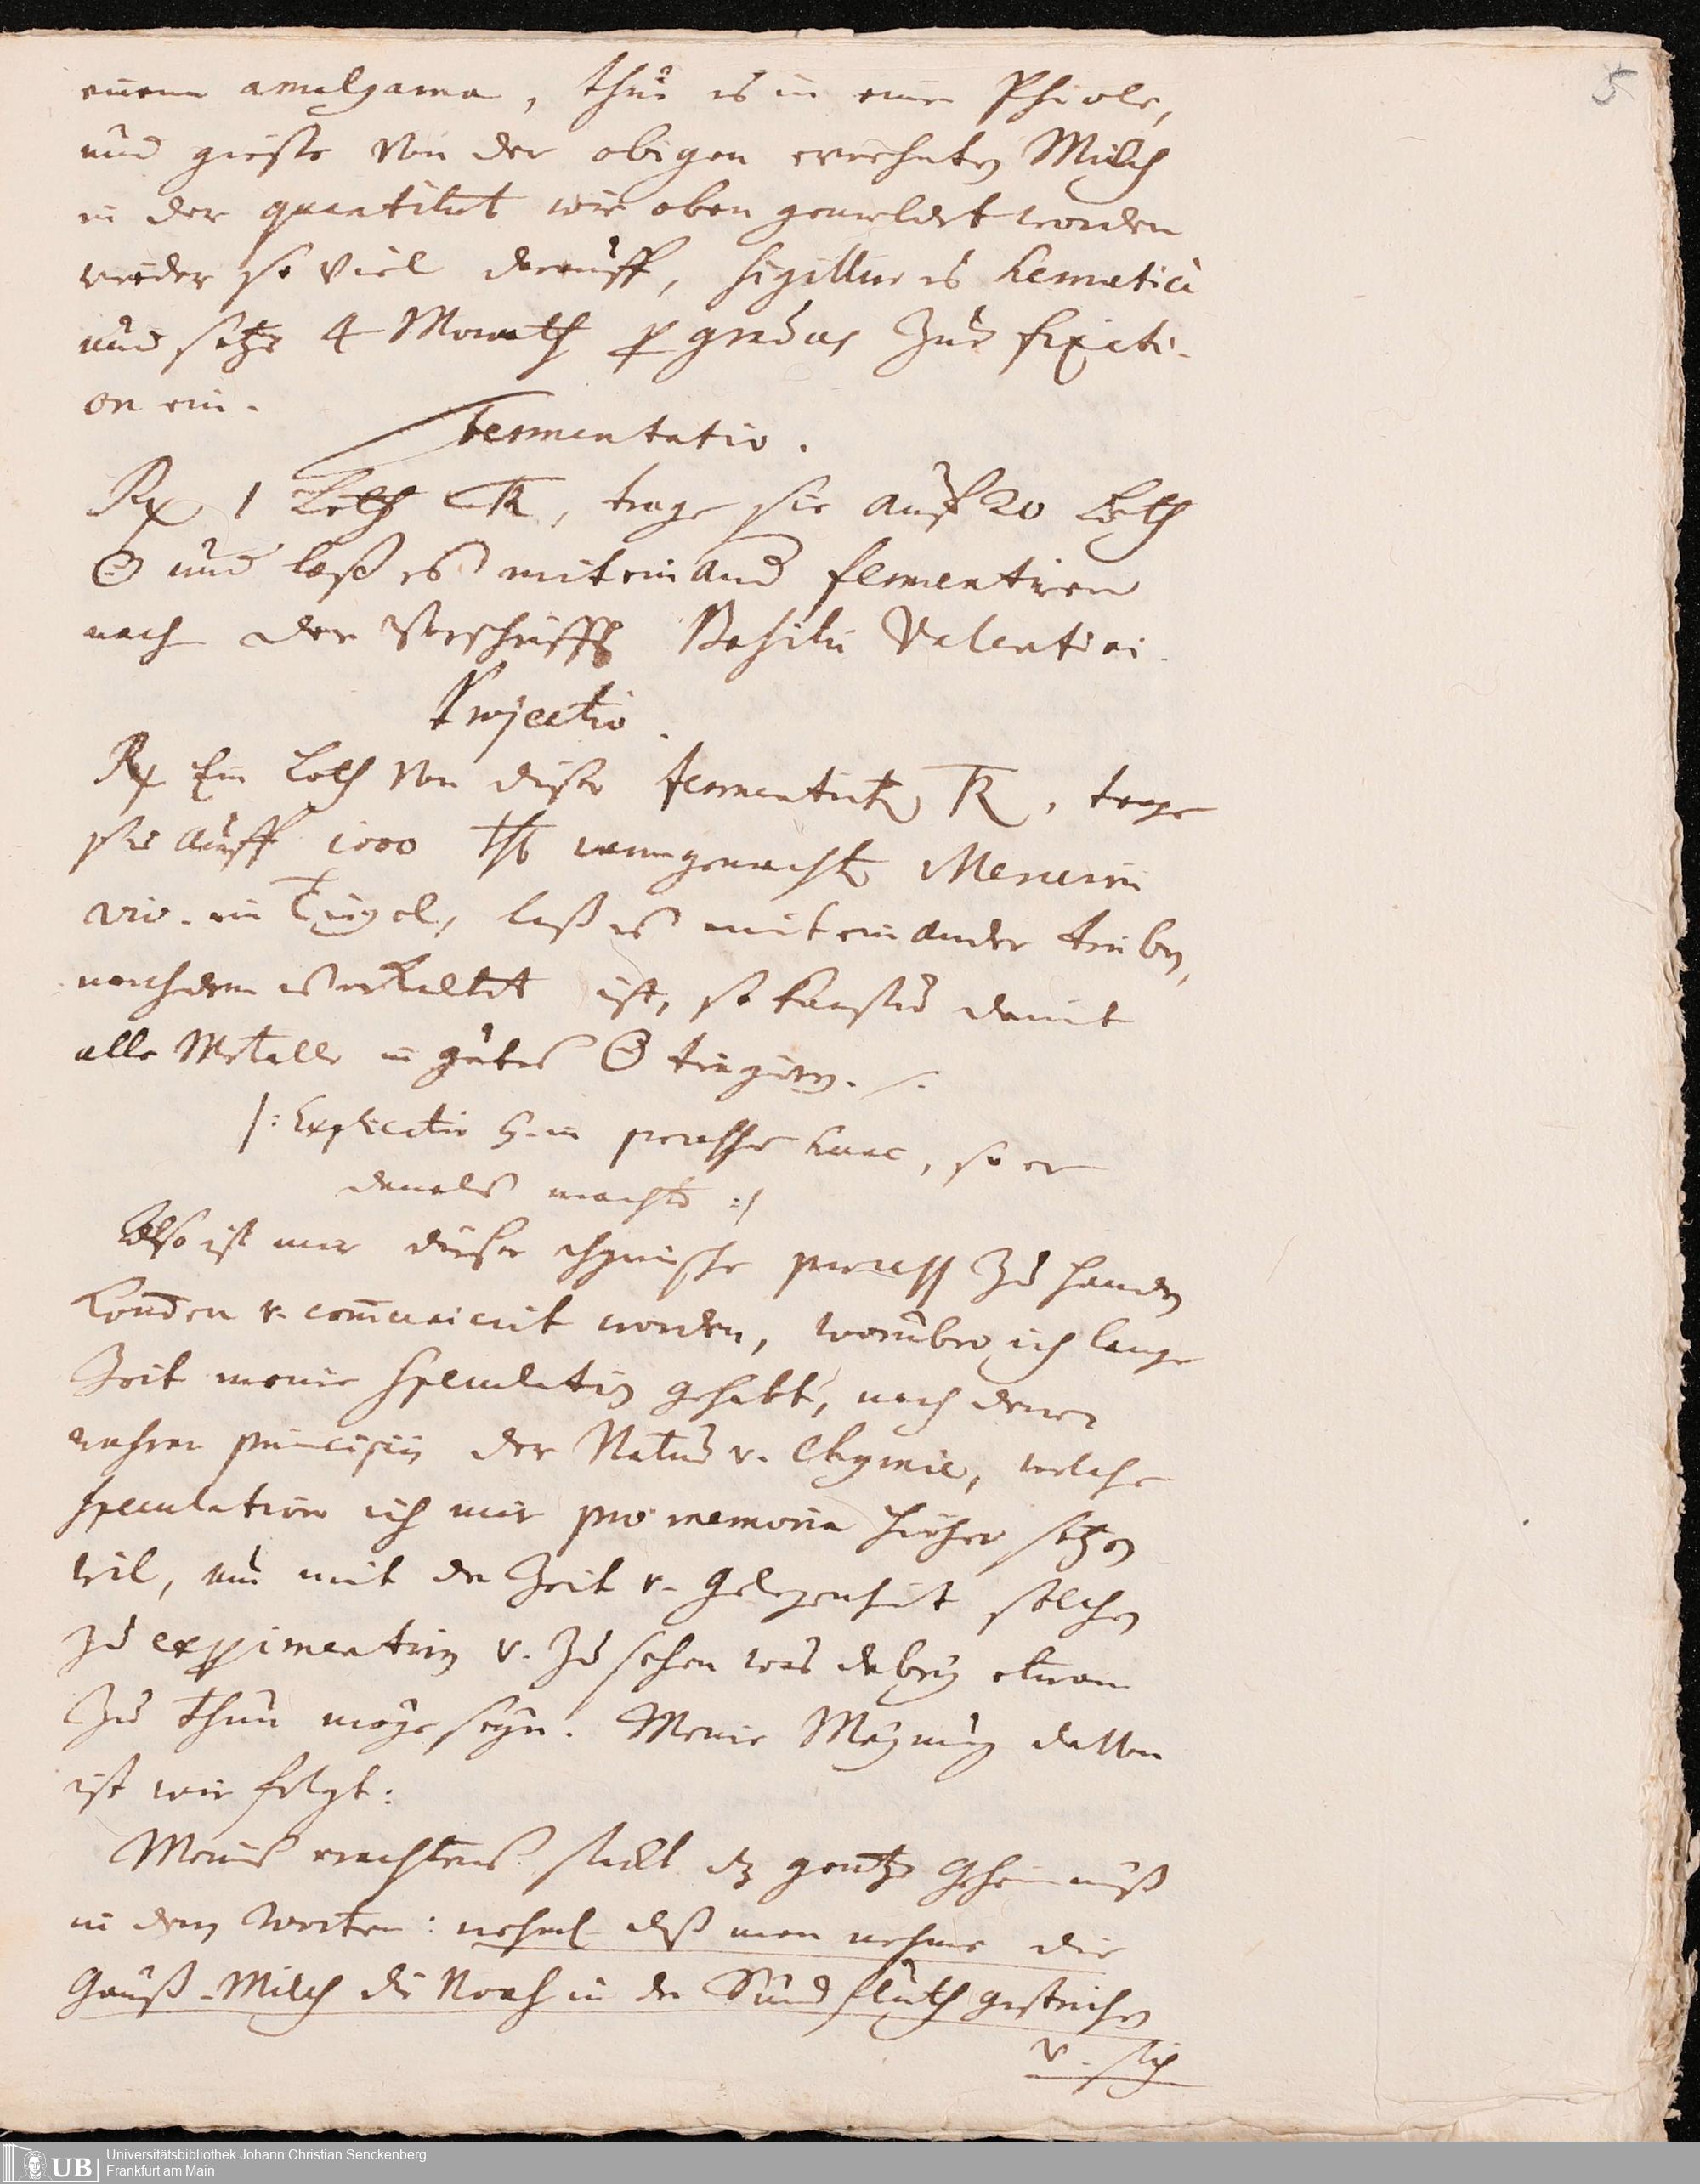 5
einem amalgama, thue es in eine Phiole,
und giesse von der obigen erwehnten Milch
in der quantitet wie oben gemeldet worden
wieder so viel darauff, sigillir es hermeticè
und setze 4 Monath p gradus Zur fixati-
on ein.
Fermentatio.
Rx 1 Loth TR, trage sie auf 20 Loth
☉ und laß es mit einand fermentiren
nach der Vorschrifft Basilii Valentini.
Projectio.
Rx Ein Loth von dieser fermentirten TR, trage
sie auff 1000 Theil warmgemachten Mercurii
viv. im Tiegel, laß es mit einander treiben,
nachdem es erkaltet ist, so kanstu damit
alle Metalle in gutes ☉ tingiren. /.
/: Explicatio in processu hunc, so er
damals machte :/
Also ist mir dieser chymische process Zu handen
kom̄en v. com̄unicirt worden, worüber ich lange
Zeit meine speculation gehabt, nach denen
wahren principiis der Natur v. Chymie, welche
speculation ich mir pro memoria hieher setzen
wil, um mit der Zeit v. Gelegenheit solchen
zu experimentiren v. Zu sehen was dabey etwan
Zu thun möge seyn. Meine Meynung davon
ist wie folgt:
Meines erachtens steckt dz gantze Geheimnuß
in denen Worten: nehml daß man nehme die
Gauß-Milch die Noah in der Sündfluth gestrichen
v. sich
UB
Universitätsbibliothek Johann Christian Senckenberg
Frankfurt am Main